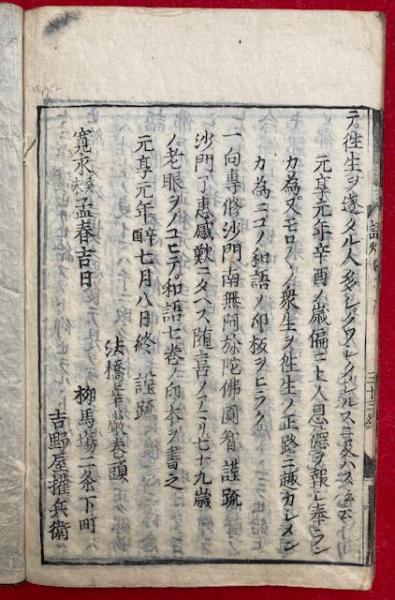 テ。往生ヲ遂タル人多シ。クワシクシルスニ及ハス云
元享元年辛酉ノ歳偏ニ上人恩德ヲ報シ奉ラン
カ為又モロ〱ノ衆生ヲ往生ノ正路ニ趣カシメン
カ為ニコノ和語ノ印板ヲヒラク
一向專修沙門南無阿弥陀佛圓智謹疏
沙門了惠感歎ニタヘス随喜ノアマリ七十九歳
ノ老眼ヲノコヒテ。和語七巻ノ印本ヲ書之
元享元年辛酉七月八日終 謹疏
法橋幸嚴巻頭
寛永癸未孟春吉日
柳馬場二条下町
吉野屋權兵衛